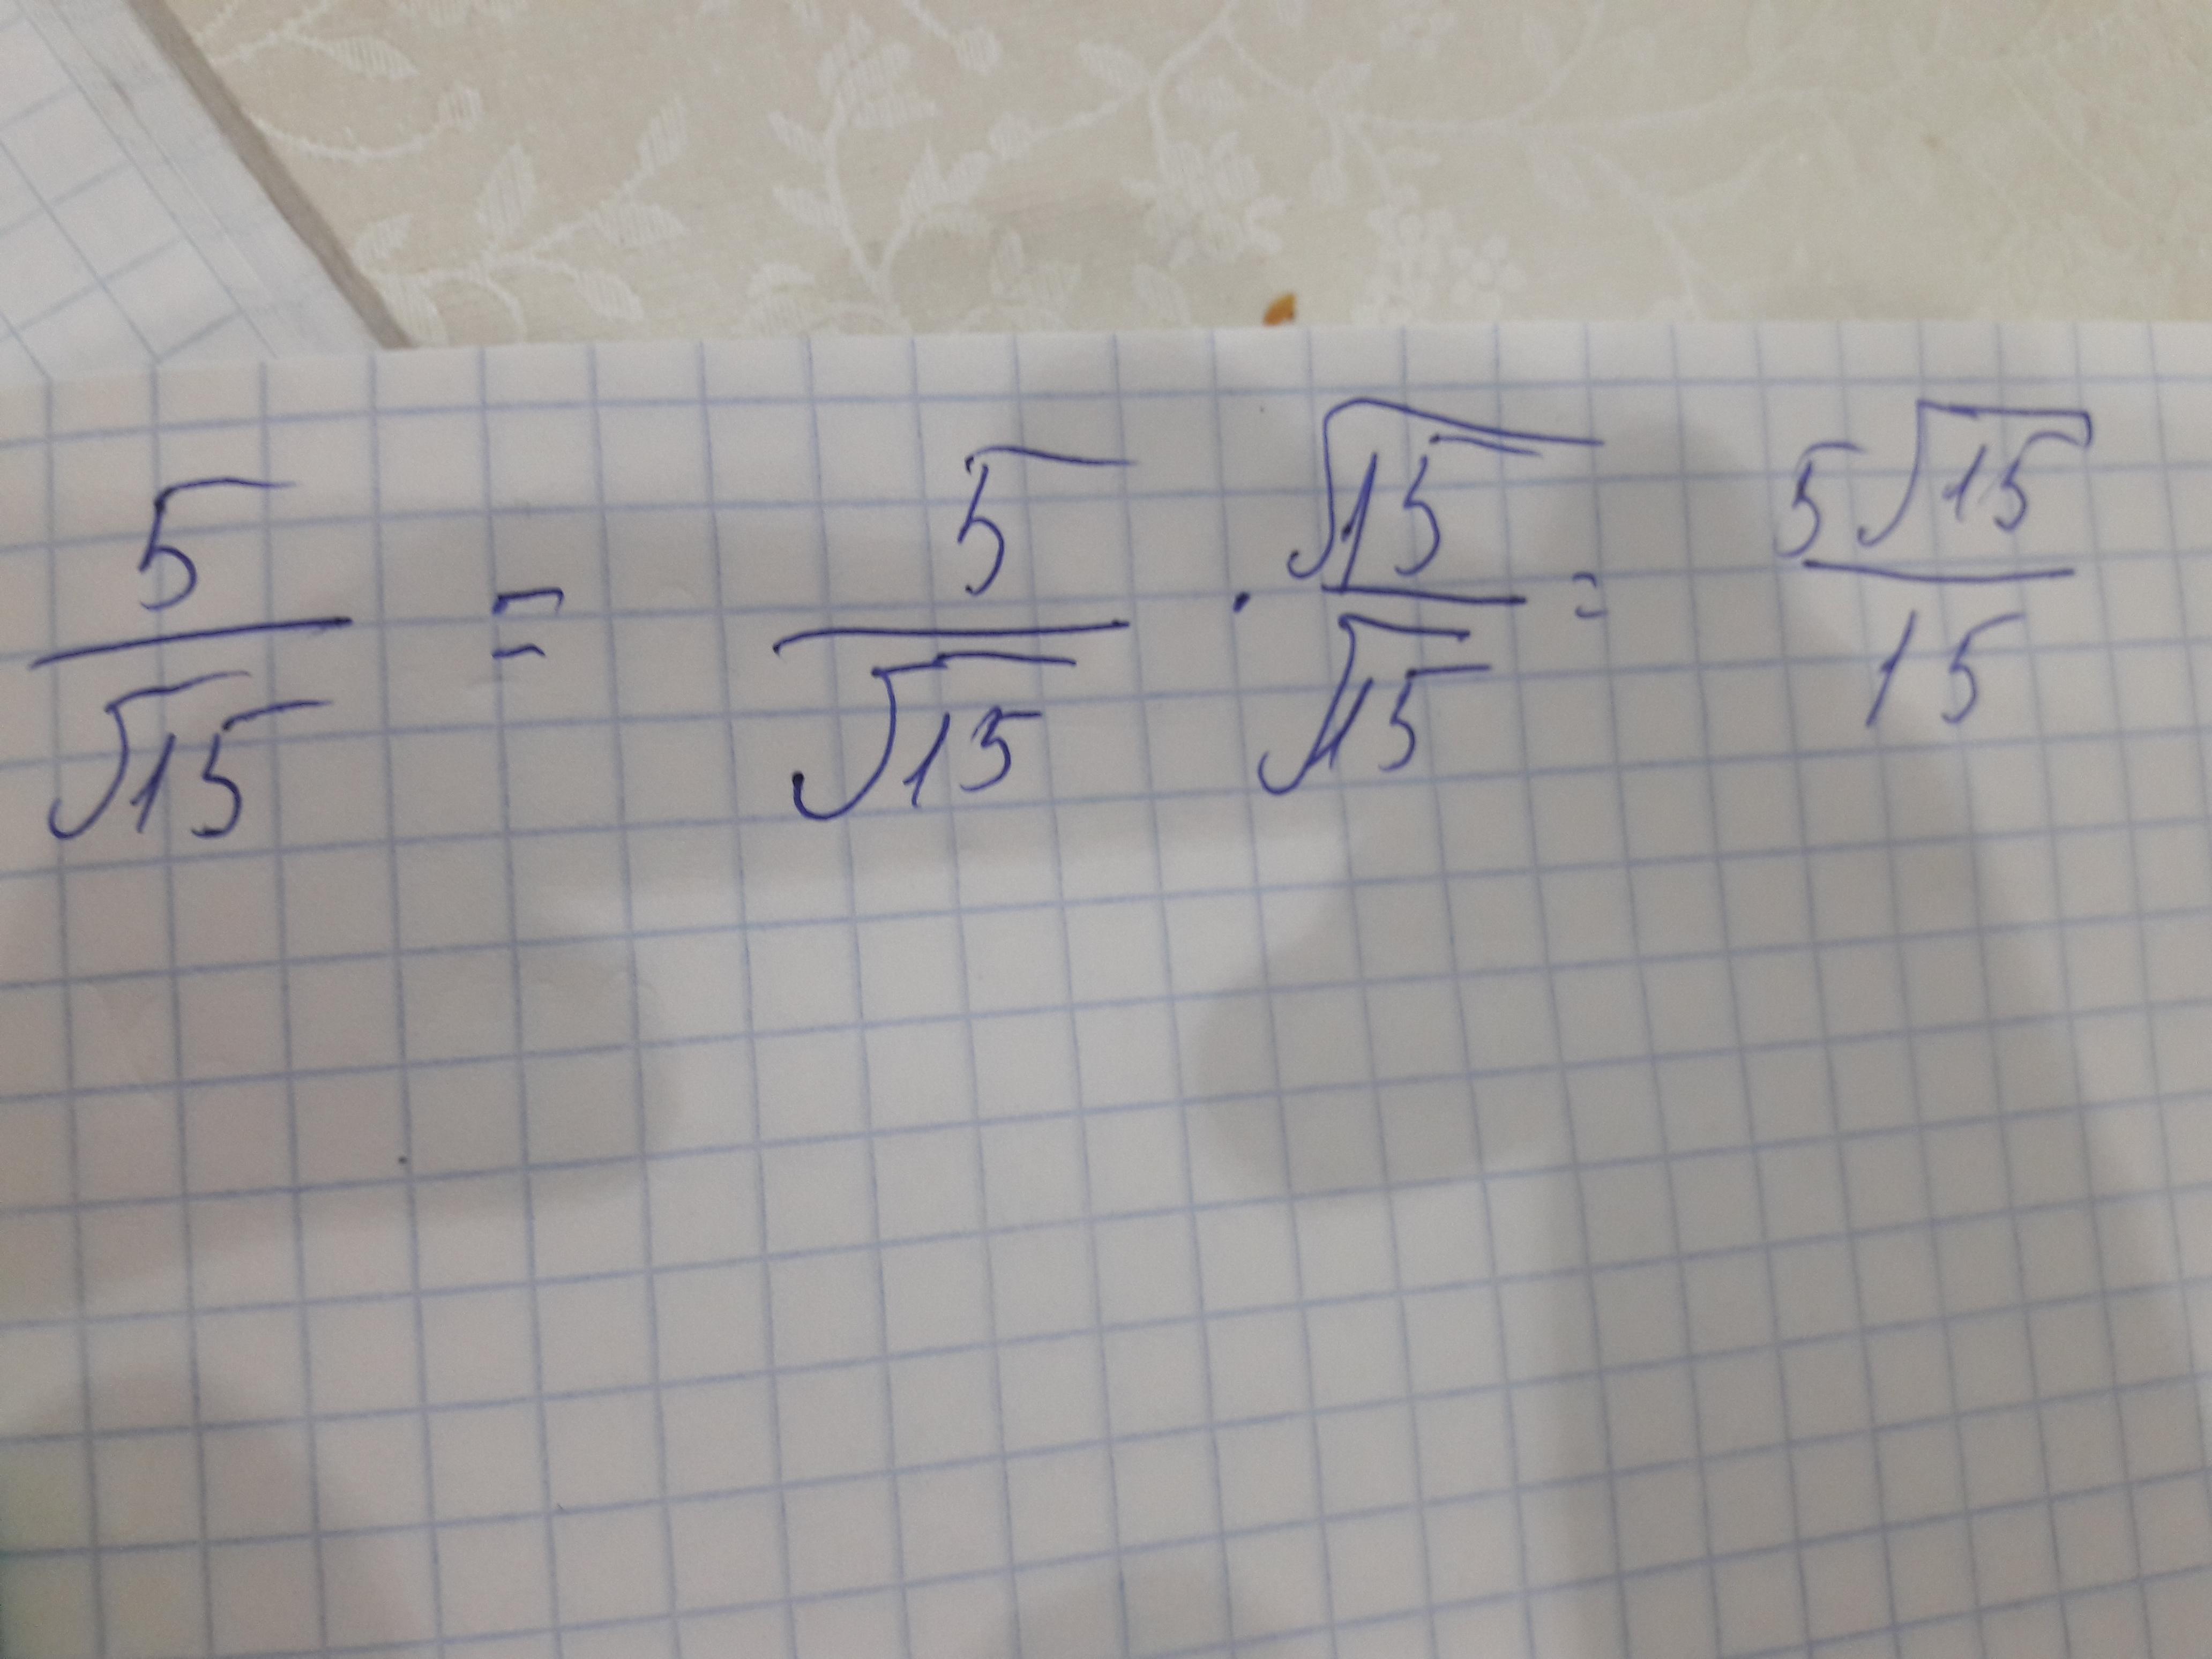 5/√15 = 5/√15 · √15/√15 = 5√15/15